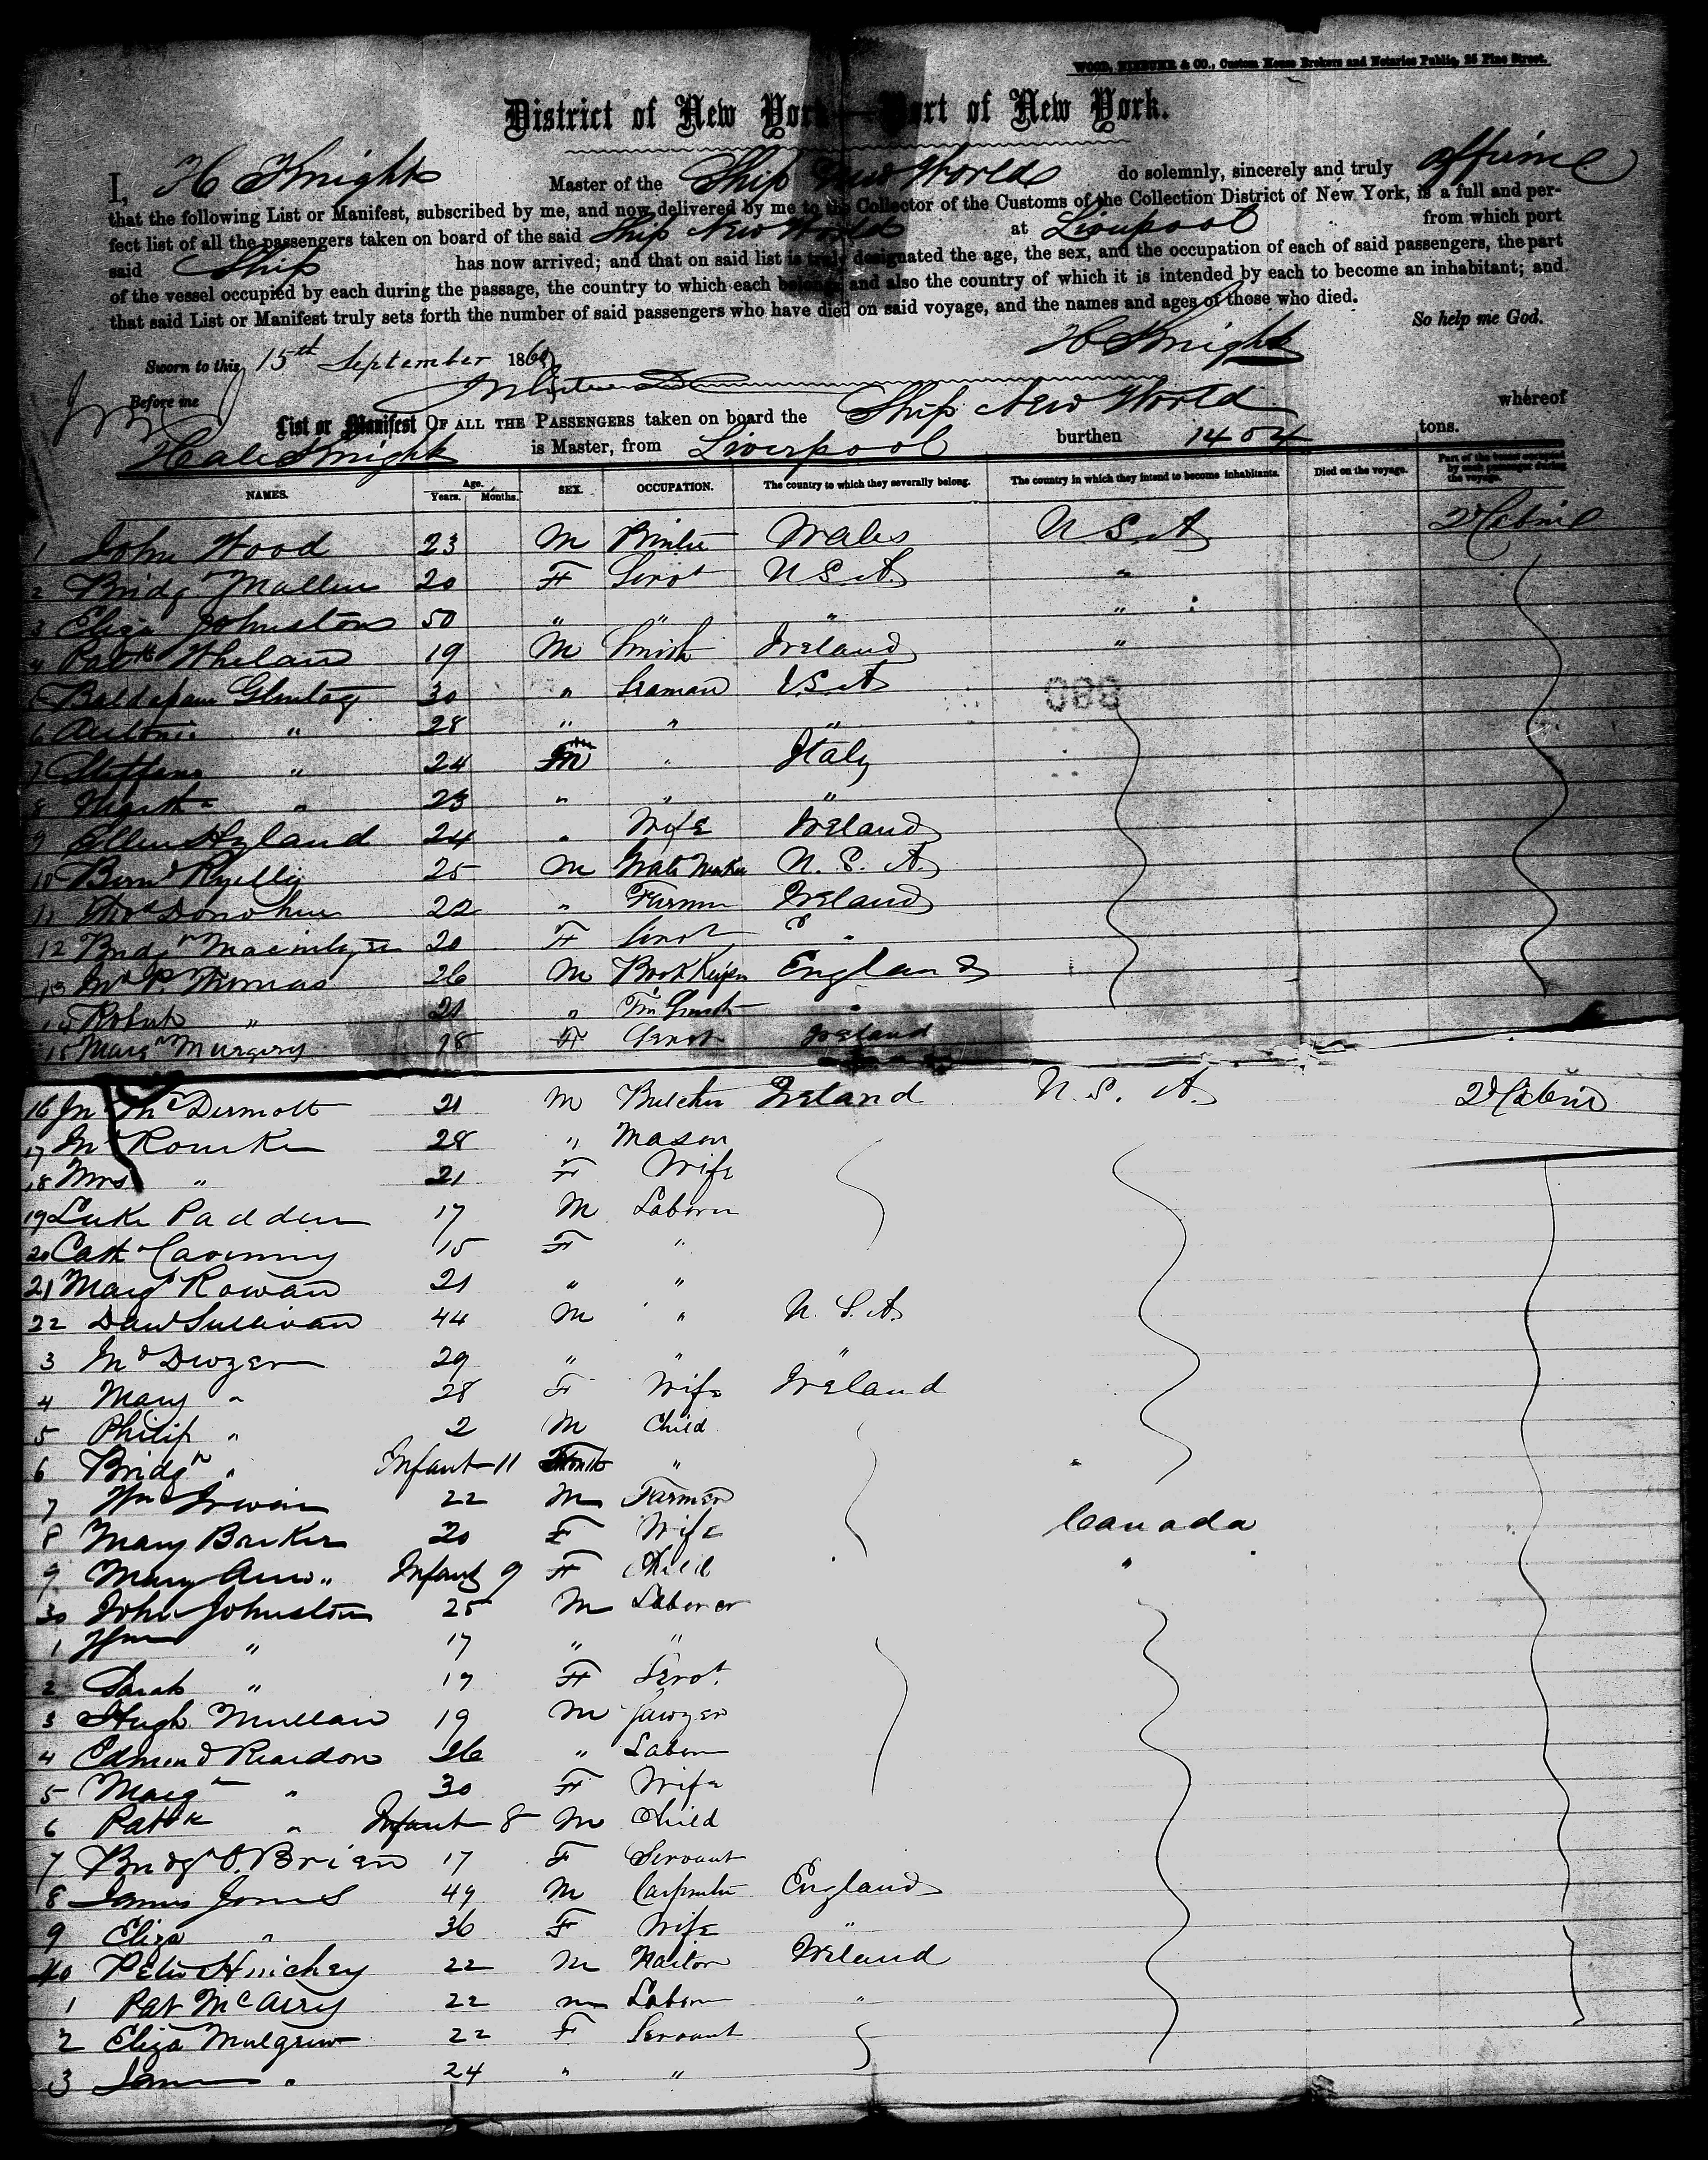 WOOD, NIEBUHR & CO., Custom House Brokers and Notaries Public, 25 Pine Street.
District of New York—Port of New York.
I, H Knight Master of the Ship New World do solemnly, sincerely and truly affirm
that the following List or Manifest, subscribed by me, and now delivered by me to the Collector of the Customs of the Collection District of New York, is a full and per-
fect list of all the passengers taken on board of the said Ship New World at Liverpool from which port
said Ship has now arrived; and that on said list is truly designated the age, the sex, and the occupation of each of said passengers, the part
of the vessel occupied by each during the passage, the country to which each belongs, and also the country of which it is intended by each to become an inhabitant; and
that said List or Manifest truly sets forth the number of said passengers who have died on said voyage, and the names and ages of those who died.
So help me God.
H Knight
Sworn to this 15th September 186
Before me
List or Manifest OF ALL THE PASSENGERS taken on board the Ship New World whereof
Hale Knight is Master, from Liverpool burthen 1404 tons.
NAMES. Age. Years. Months. SEX. OCCUPATION. The country to which they severally belong. The country in which they intend to become inhabitants. Died on the voyage. Part of the vessel occupied by each passenger during the voyage.
1 John Wood 23 M Printer Wales U S A 2d Cabin
2 Bridgt Mullen 20 F Servt U S A "
3 Eliza Johnston 50 " " " "
4 Patk Whelan 19 M Smith Ireland "
5 30 " Seaman U S A 088
6 Antonio " 28 " " "
7 Steffano " 24 M " Italy
8 " 23 " " "
9 Ellen Hyland 24 " Wife Ireland
10 Bernd Ryelly 25 M U. S. A.
11 Donohue 22 " Farmer Ireland
12 Bridgt Macintyre 20 F Servt "
13 Jno P. Thomas 26 M Book Keeper England
14 Robert " 21 "
15 Margt Murgery 18 F Servt Ireland
16 Jn McDermott 21 M Butcher Ireland U. S. A. 2d Cabin
17 M Rourke 28 " Mason
18 Mrs " 21 F Wife
19 Luke Padden 17 M Laborer
20 Cath Caveniny 15 F "
21 Margt Rowan 21 " "
22 Danl Sullivan 44 M " U. S. A.
3 Dwyer 29 " " "
4 Mary " 28 F Wife Ireland
5 Philip " 2 M Child
6 Bridgt " Infant 11 Month "
7 Wm Irwin 22 M Farmer
8 Mary Barker 20 F Wife Canada
9 Mary Ann " Infant 9 F Child "
30 John Johnston 25 M Laborer
1 Wm " 17 " "
2 Sarah " 19 F Servt.
3 Hugh Mullan 19 M Sawyer
4 Edmond Reardon 26 " Labor
5 Margt " 30 F Wife
6 Patk " Infant 8 M Child
7 Bridgt O'Brien 17 F Servant
8 James Jones 49 M Carpenter England
9 Eliza " 36 F Wife "
40 Peter Hinchey 22 M Ireland
1 Pat McAvey 22 m Labor "
2 Eliza Mulgrew 22 F Servant
3 Jane " 24 " "